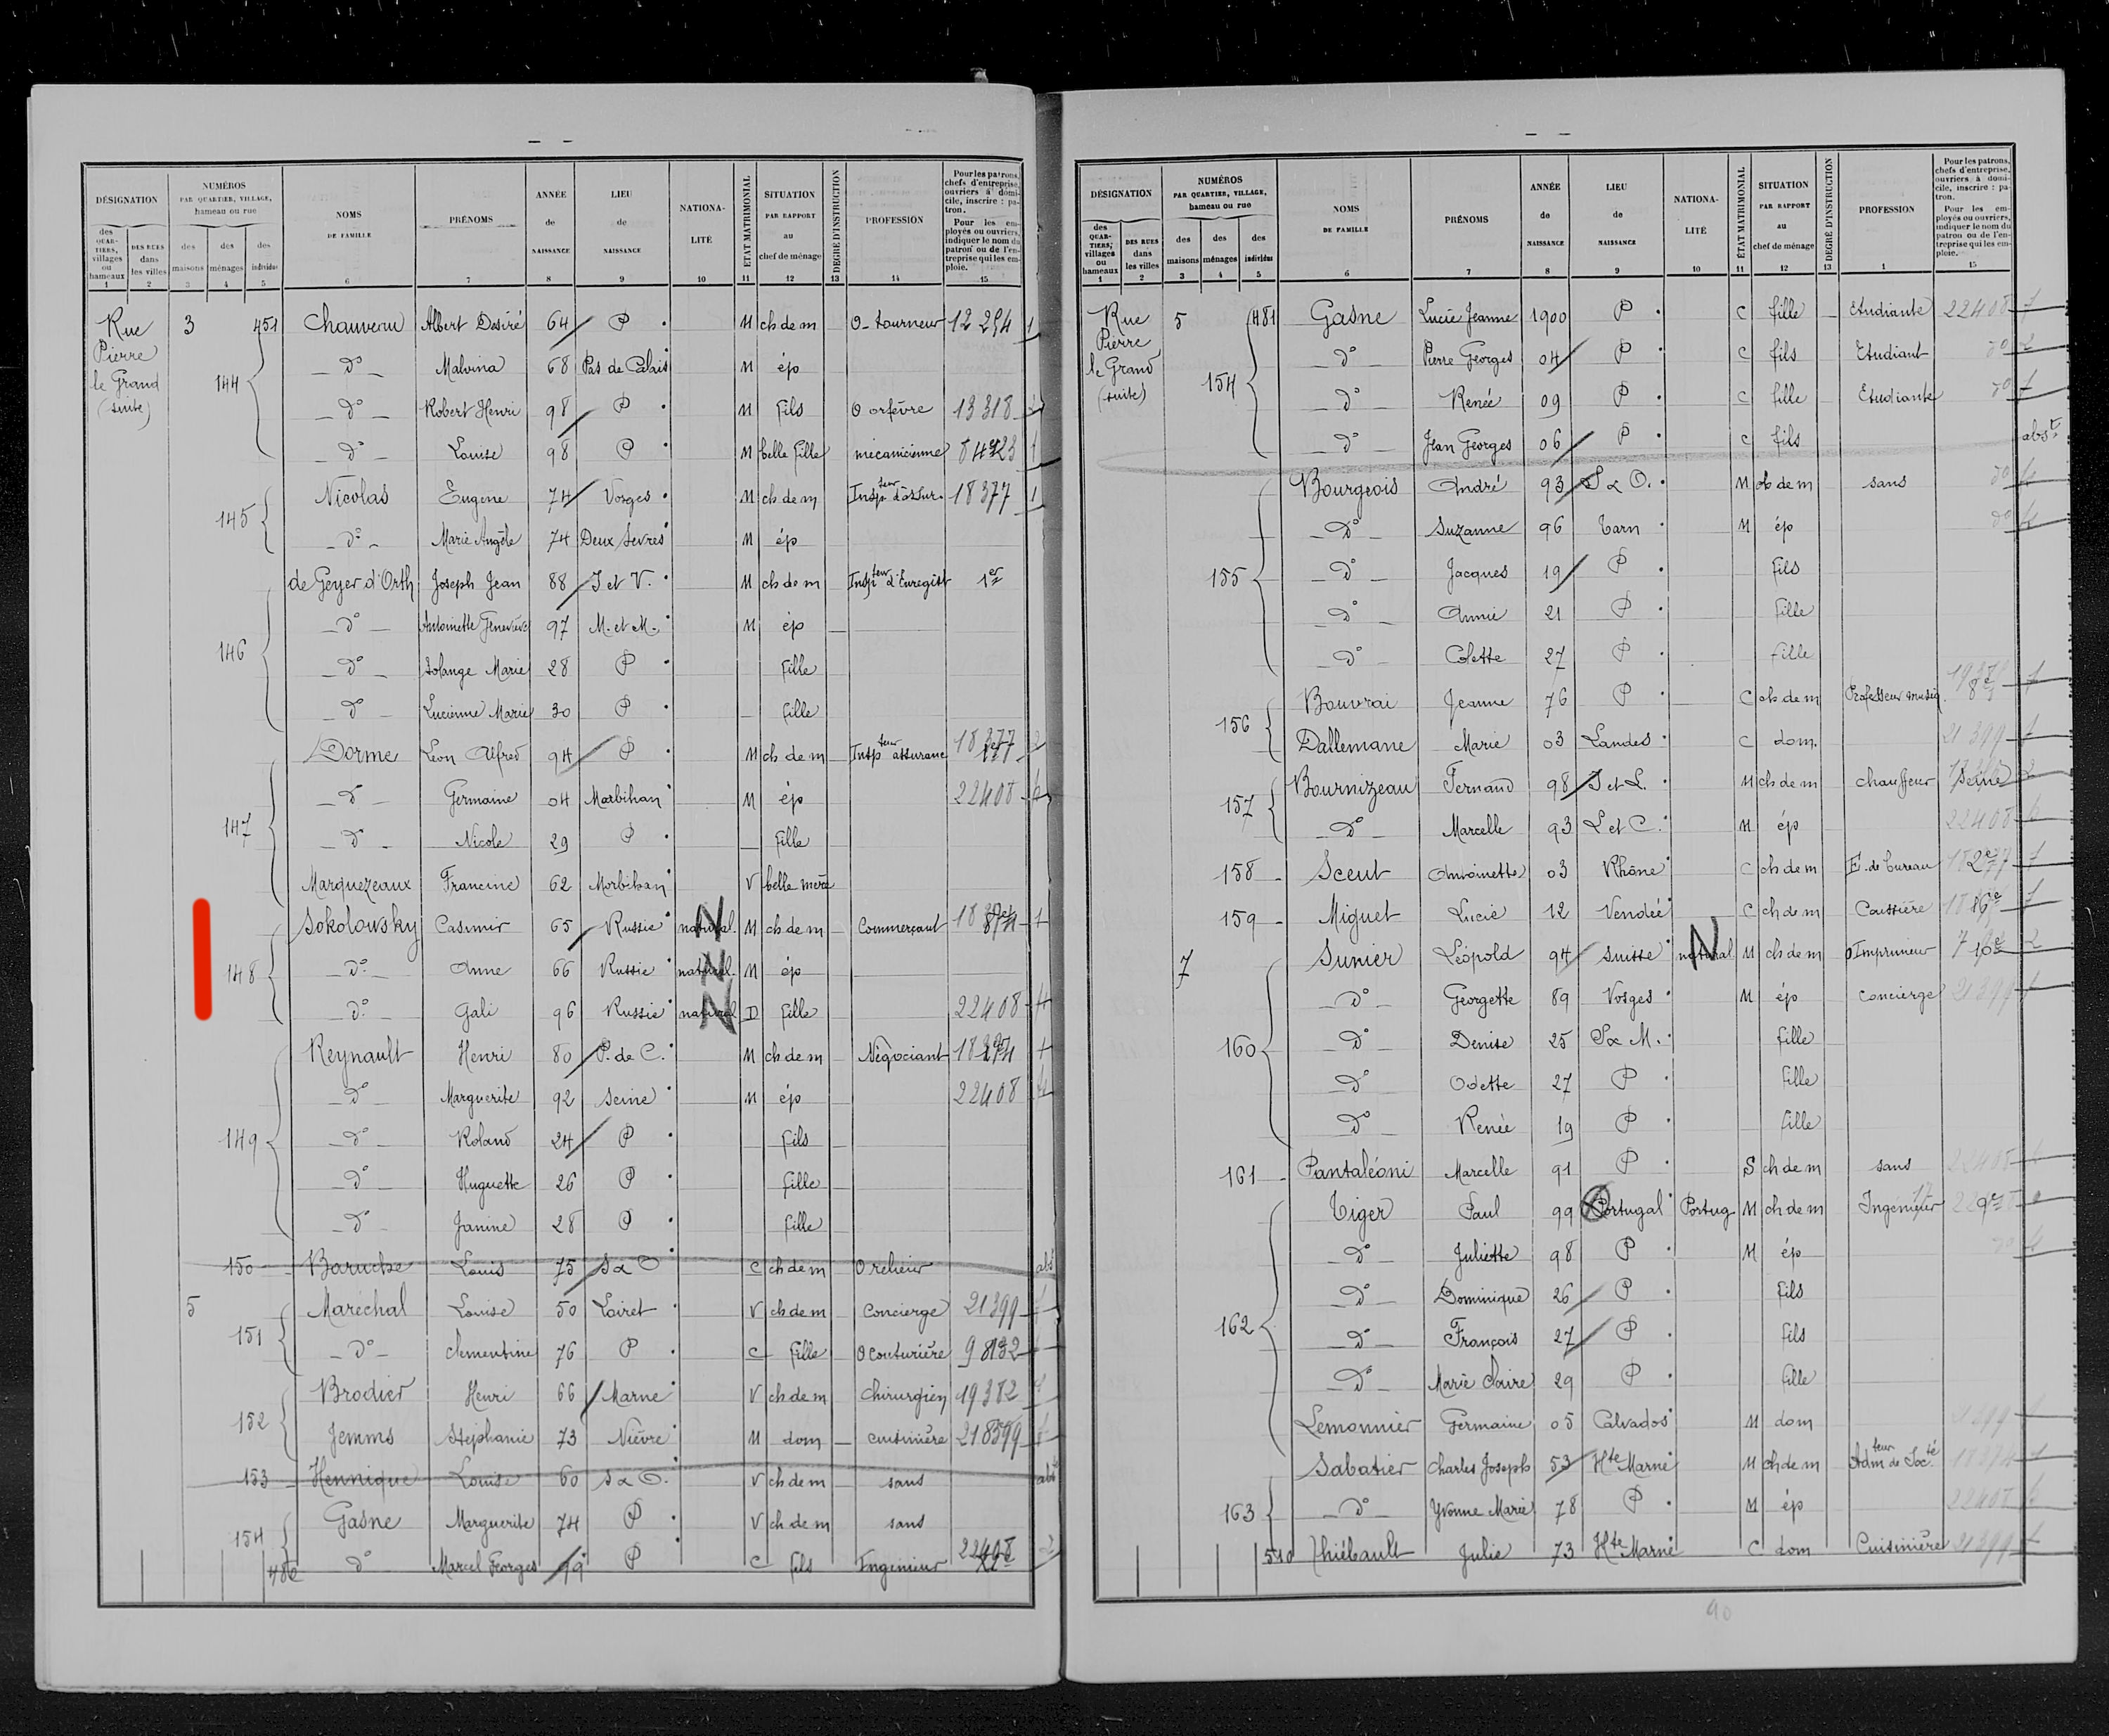 DÉSIGNATION NUMÉROS PAR QUARTIER, VILLAGE, hameau ou rue NOMS DE FAMILLE PRÉNOMS ANNÉE de NAISSANCE LIEU de NAISSANCE NATIONALITÉ ÉTAT MATRIMONIAL SITUATION PAR RAPPORT au chef de ménage DEGRÉ D'INSTRUCTION PROFESSION Pour les patrons, chefs d'entreprise, ouvriers à domicile, inscrire : patron. Pour les employés ou ouvriers, indiquer le nom du patron ou de l'entreprise qui les emploie.
des QUARTIERS, villages ou hameaux DES RUES dans les villes des maisons des ménages des individus
1 2 3 4 5 6 7 8 9 10 11 12 13 14 15
Rue Pierre le Grand (suite)
3 451 Chauveau Albert Desiré 64 P M ch de m O- tourneur 12 254 1
144 d° Malvina 68 Pas de Calais M ép
d° Robert Henri 98 P M fils O orfèvre 13 318
d° Louise 98 P M belle fille mécanicienne
145 Nicolas Eugène 74 Vosges M ch de m Insp teur d'assur. 18 377 1
d° Marie Angèle 74 Deux Sevres M ép
146 de Geyer d'Orth Joseph Jean 88 I et V. M ch de m Insp teur d'Enregist 1er
d° Antoinette Geneviève 97 M. et M. M ép
d° Solange Marie 28 P fille
d° Lucienne Marie 30 P fille
147 Dorme Léon Alfred 94 P M ch de m Insp teur assuranc 18377
d° Germaine 04 Morbihan M ép 22408
d° Nicole 29 P fille
Marquezeaux Francine 62 Morbihan V belle mère
148 Sokolowsky Casimir 65 Russie natural. N M ch de m Commerçant
d° Anne 66 Russie natural. N M ép
d° Gali 96 Russie natural N D fille 22408
149 Reynault Henri 80 P. de C. M ch de m Négociant
d° Marguerite 92 Seine M ép 22408
d° Roland 24 P fils
d° Huguette 26 P fille
d° Janine 28 P fille
150 Baruche Louis 75 S & O C ch de m O relieur abs
5 151 Maréchal Louise 50 Loiret V ch de m Concierge 21399
d° Clementine 76 P C fille O couturière
152 Brodier Henri 66 Marne V ch de m Chirurgien 19382
Jemms Stéphanie 73 Nièvre M dom cuisinière
153 Hennique Louise 60 S & O. V ch de m sans abs
154 Gasne Marguerite 74 P V ch de m sans
486 d° Marcel Georges 99 P C fils Ingénieur 22408
DÉSIGNATION NUMÉROS PAR QUARTIER, VILLAGE, hameau ou rue NOMS DE FAMILLE PRÉNOMS ANNÉE de NAISSANCE LIEU de NAISSANCE NATIONALITÉ ÉTAT MATRIMONIAL SITUATION PAR RAPPORT au chef de ménage DEGRÉ D'INSTRUCTION PROFESSION Pour les patrons, chefs d'entreprise, ouvriers à domicile, inscrire : patron. Pour les employés ou ouvriers, indiquer le nom du patron ou de l'entreprise qui les emploie.
des QUARTIERS, villages ou hameaux DES RUES dans les villes des maisons des ménages des individus
1 2 3 4 5 6 7 8 9 10 11 12 13 1 15
Rue Pierre le Grand (suite)
5 481 Gasne Lucie Jeanne 1900 P C fille Etudiante 22408
154 d° Pierre Georges 04 P C fils Etudiant d°
d° Renée 09 P C fille Etudiante d°
d° Jean Georges 06 P C fils abst.
155 Bourgeois André 93 S & O. M ch de m sans d°
d° Suzanne 96 Tarn M ép d°
d° Jacques 19 P fils
d° Annie 21 P fille
d° Colette 27 P fille
156 Bouvrai Jeanne 76 P C ch de m Professeur musiq.
Dallemane Marie 03 Landes C dom. 21 399
157 Bournizeau Fernand 98 I et L. M ch de m chauffeur Seine
d° Marcelle 93 L et C. M ép 22408
158 Sceut Antoinette 03 Rhône C ch de m E. de bureau
159 Miguet Lucie 12 Vendée C ch de m Caissière
7 160 Sunier Léopold 94 Suisse natural N M ch de m O Imprimeur
d° Georgette 89 Vosges M ép Concierge 21399
d° Denise 25 S & M. fille
d° Odette 27 P fille
d° Renée 19 P fille
161 Pantaléoni Marcelle 91 P S ch de m sans 22408
162 Tiger Paul 99 Portugal Portug M ch de m Ingénieur
d° Juliette 98 P M ép d°
d° Dominique 26 P fils
d° François 27 P fils
d° Marie Claire 29 P fille
Lemonnier Germaine 05 Calvados M dom
163 Sabatier Charles Joseph 53 Hte Marne M ch de m Adm teur de Soc té
d° Yvonne Marie 78 P M ép 22408
510 Thiébault Julie 73 Hte Marne C dom Cuisinière 21399
90